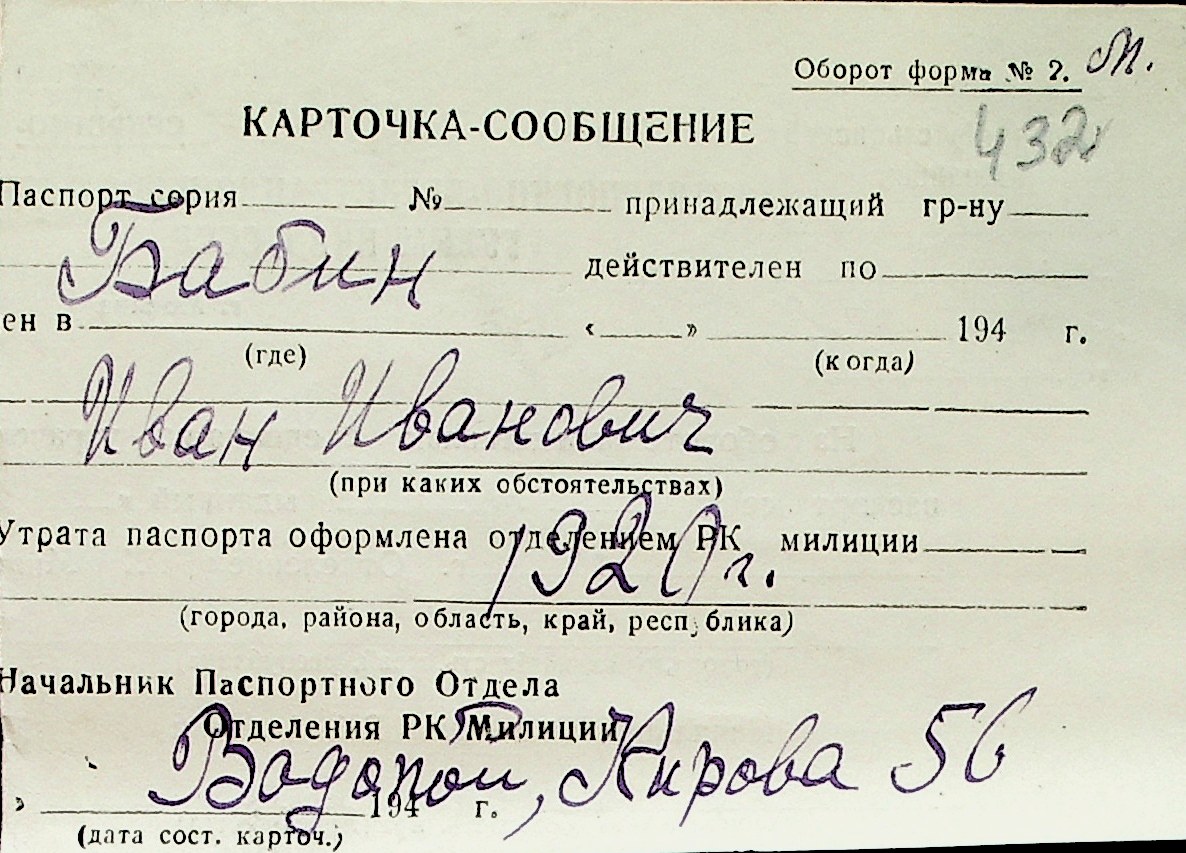 Оборот форма № 2. М.
КАРТОЧКА-СООБЩЕНИЕ
432
Паспорт серия № принадлежащий гр-ну
Бабин
действителен по
ен в « » 194 г.
(где) (когда)
Иван Иванович
(при каких обстоятельствах)
Утрата паспорта оформлена отделением РК милиции
1920 г.
(города, района, область, край, республика)
Начальник Паспортного Отдела
Отделения РК Милиции
Водопой, Кирова 56
» 194 г.
(дата сост. карточ.)